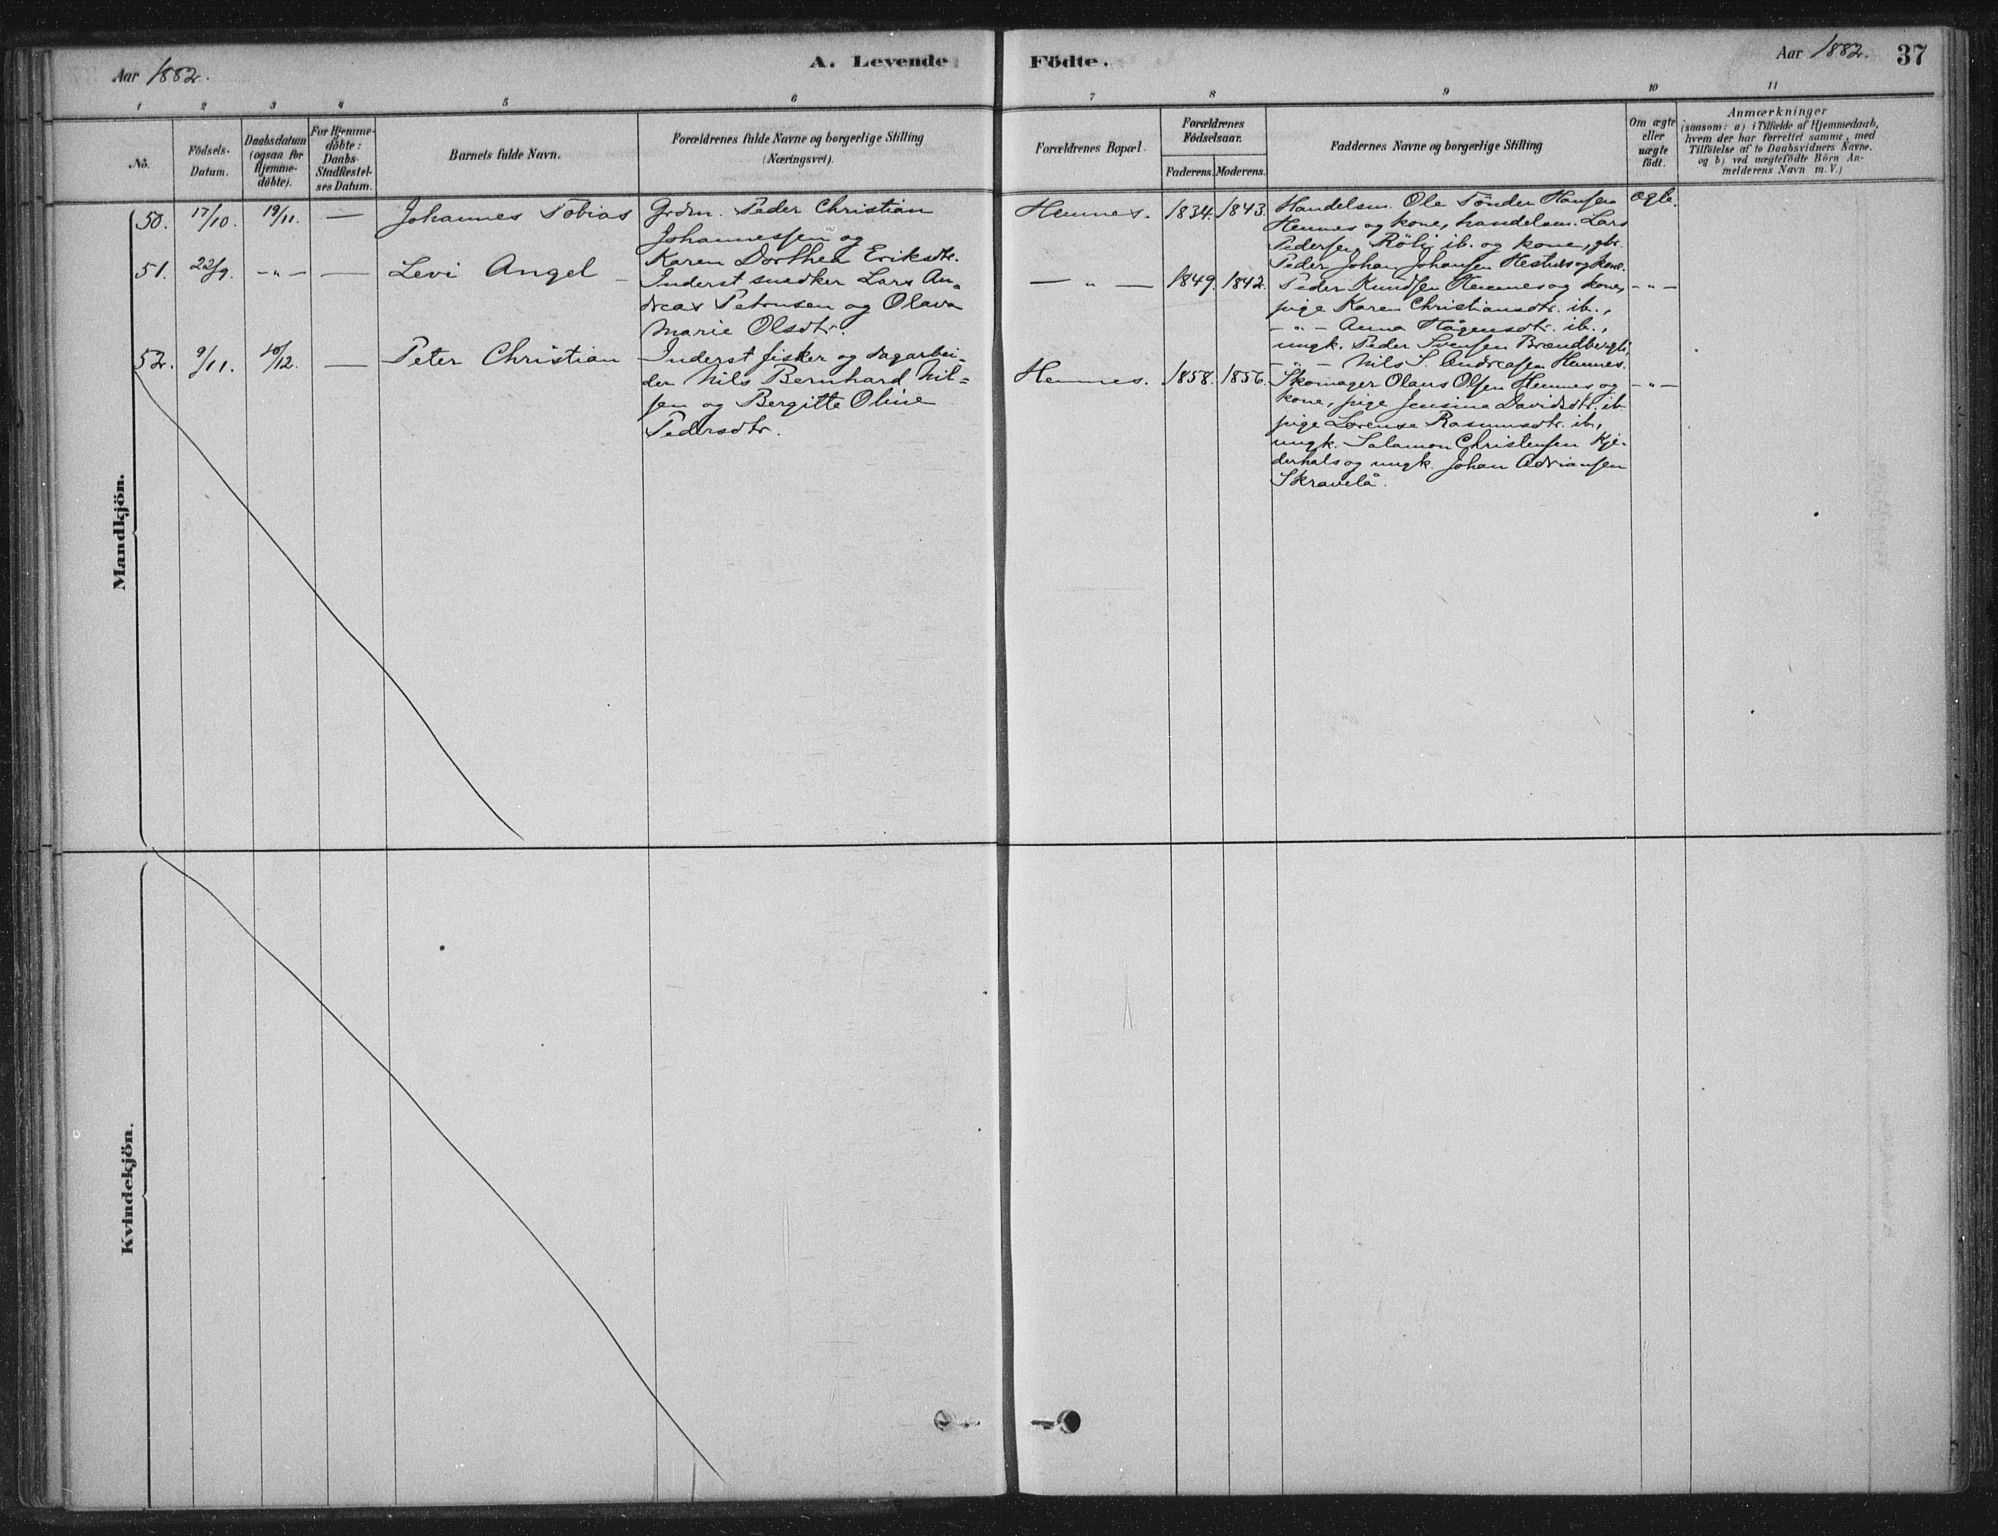 Aar 1882.
A. Levende Födte.
Aar 1882.
37
1 2 3 4 5 6 7 8 9 10 11
No.
Födsels-
Datum.
Daabsdatum
(ogsaa for
Hjemme-
döbte).
For Hjemme-
döbte:
Daabs-
Stadfæstel-
ses Datum.
Barnets fulde Navn.
Forældrenes fulde Navne og borgerlige Stilling
(Næringsvei).
Forældrenes Bopæl.
Forældrenes
Födselsaar.
Faderens. Moderens.
Faddernes Navne og borgerlige Stilling
Om ægte
eller
uægte
födt.
Anmærkninger
(saasom: a) i Tilfælde af Hjemmedaab,
hvem der har forrettet samme, med
Tilföielse af to Daabsvidners Navne,
og b) ved uægtefödte Börn An-
melderens Navn m. V.)
Mandkjön.
50. 17/10. 19/11. — Johannes Tobias
Grdm. Peder Christian
Johannessen og
Karen Dorthea Eriksdtr.
Hennes. 1834. 1843.
Handelsm. Ole Tönder Hansen
Hennes og kone, handelsm. Lars
Pedersen Röli ib. og kone, gbr.
Peder Johan Johansen og kone.
Ægte.
51. 22/9. -"- — Levi Angel —
Inderst snedker Lars An-
dreas Petersen og Olava
Marie Olsdtr.
— " — 1849. 1842.
Peder Knudsen Hennes og kone,
pige Karen Christiansdtr. ib.,
-"- Anna Hågensdtr. ib.,
ungk. Peder Svensen
-"- Nils S. Andreasen Hennes.
-"-
52. 9/11. 10/12. — Peter Christian
Inderst fisker og dagarbei-
der Nils Bernhard Nil-
sen og Bergitte Oline
Pedersdtr.
Hennes. 1858. 1856.
Skomager Olaus Olsen Hennes og
kone, pige Jensina Davidsdtr. ib.
pige Lorense Rasmusdtr. ib.,
ungk. Salamon Christensen Kje-
derhals og ungk. Johan Adriansen
Skravelå.
-"-
Kvindekjön.